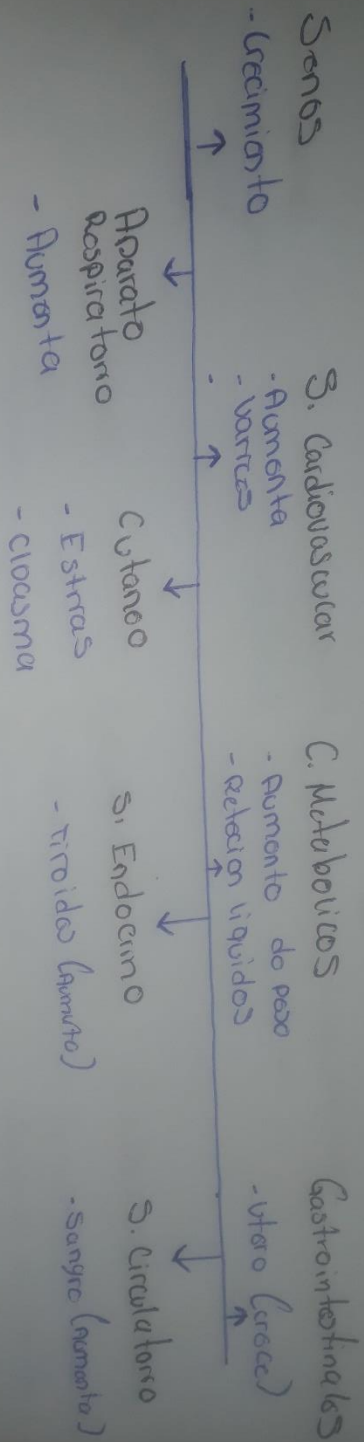 Senos
- Crecimiento
S. Cardiovascular
- Aumenta
- Varices
-
C. Metabolicos
- Aumento de peso
- Retecion liquidos
Gastrointestinales
- Utero (crece)
Aparato
Respiratorio
- Aumenta
Cutaneo
- Estrias
- Cloasma
S. Endocrino
- Tiroides (Aumto)
S. Circulatorio
- Sangre (Aumenta)